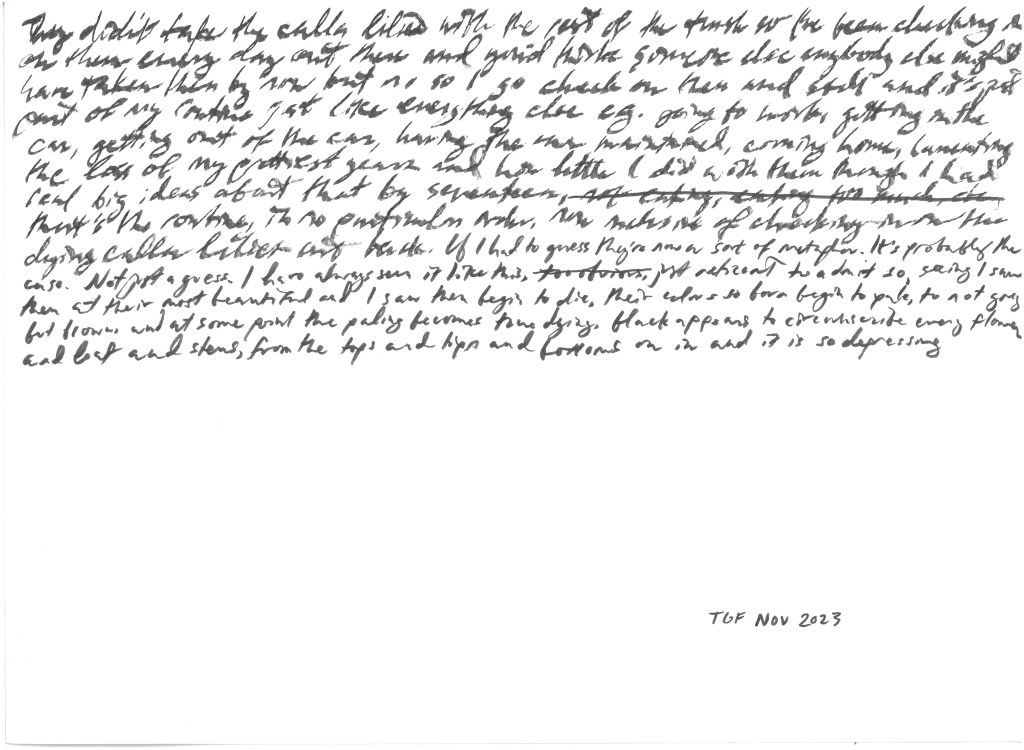 They didn't take the calla lilies with the rest of the trash so I've been checking in
on them every day out there and you'd think someone else anybody else might
have taken them by now but no so I go check on them and stuff and it's just
part of my routine just like everything else e.g. going to work, getting in the
car, getting out of the car, having the car maintained, coming home, lamenting
the loss of my prettiest years and how little I did with them though I had
real big ideas about that by seventeen, not eating, eating too much, etc
that's the routine, in no particular order, now inclusive of checking in on the
dying calla lilies out back. If I had to guess they're now a sort of metaphor. It's probably the
case. Not just a guess. I have always seen it like this, too obvious, just reticent to admit so, seeing I saw
them at their most beautiful and I saw them begin to die, their colors so born begin to pale, to not grey
but brown and at some point the paling becomes true dying. Black appears to circumscribe every flower
and leaf and stems, from the tops and tips and bottoms on in and it is so depressing
TGF Nov 2023